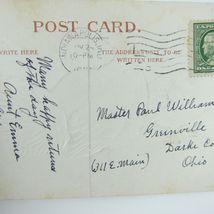 POST CARD.
WRITE HERE
THE ADDRESS ONLY TO BE
WRITTEN HERE
10-PM
Many happy returns
of the day
Aunt Emma
Master Paul William
Grenville
Darke Co
(211 E. Main)
Ohio